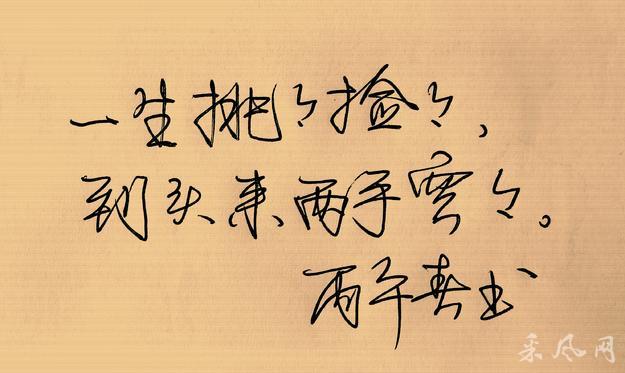 一生挑々捡々，
到头来两手空々。
丙午春书
采风网